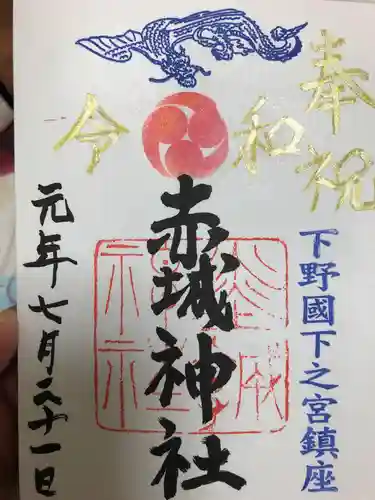 奉祝
令和
下野國下之宮鎮座
赤城神社
元年七月二十一日